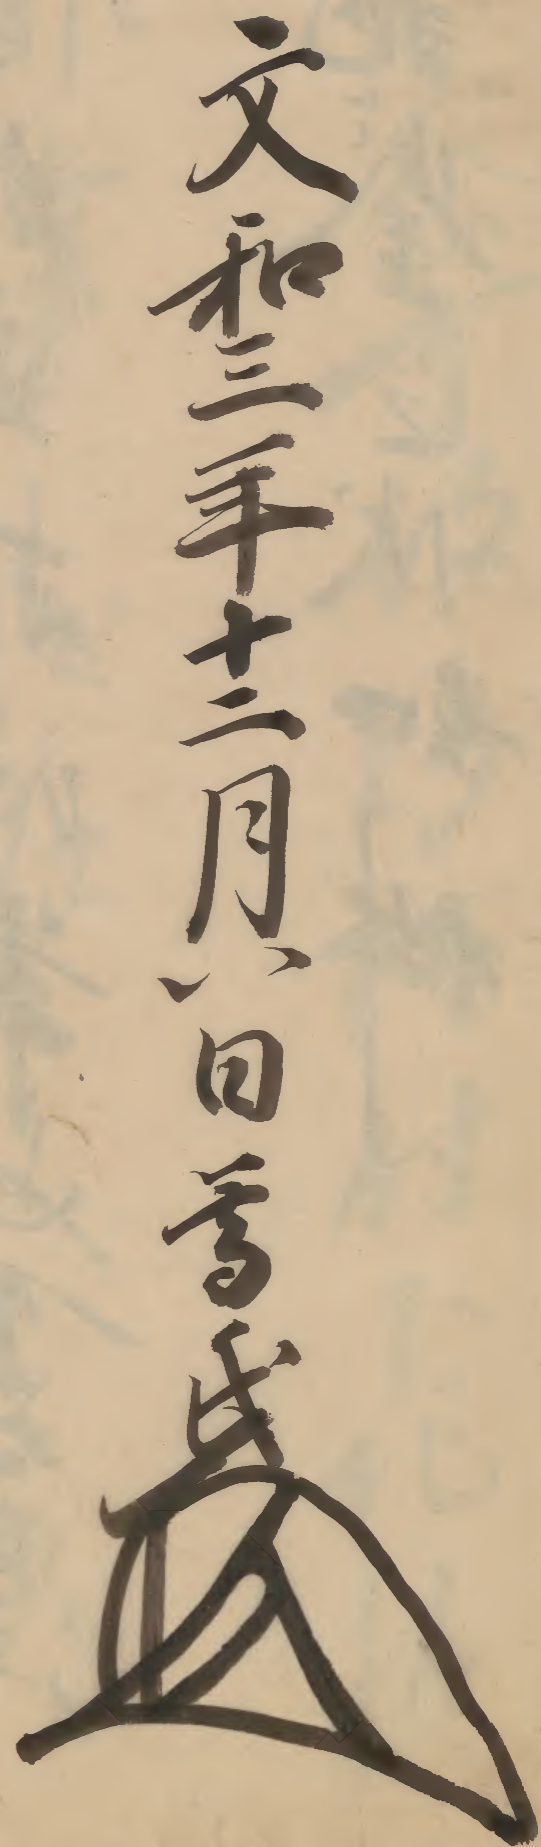 文和三年十二月八日尊氏